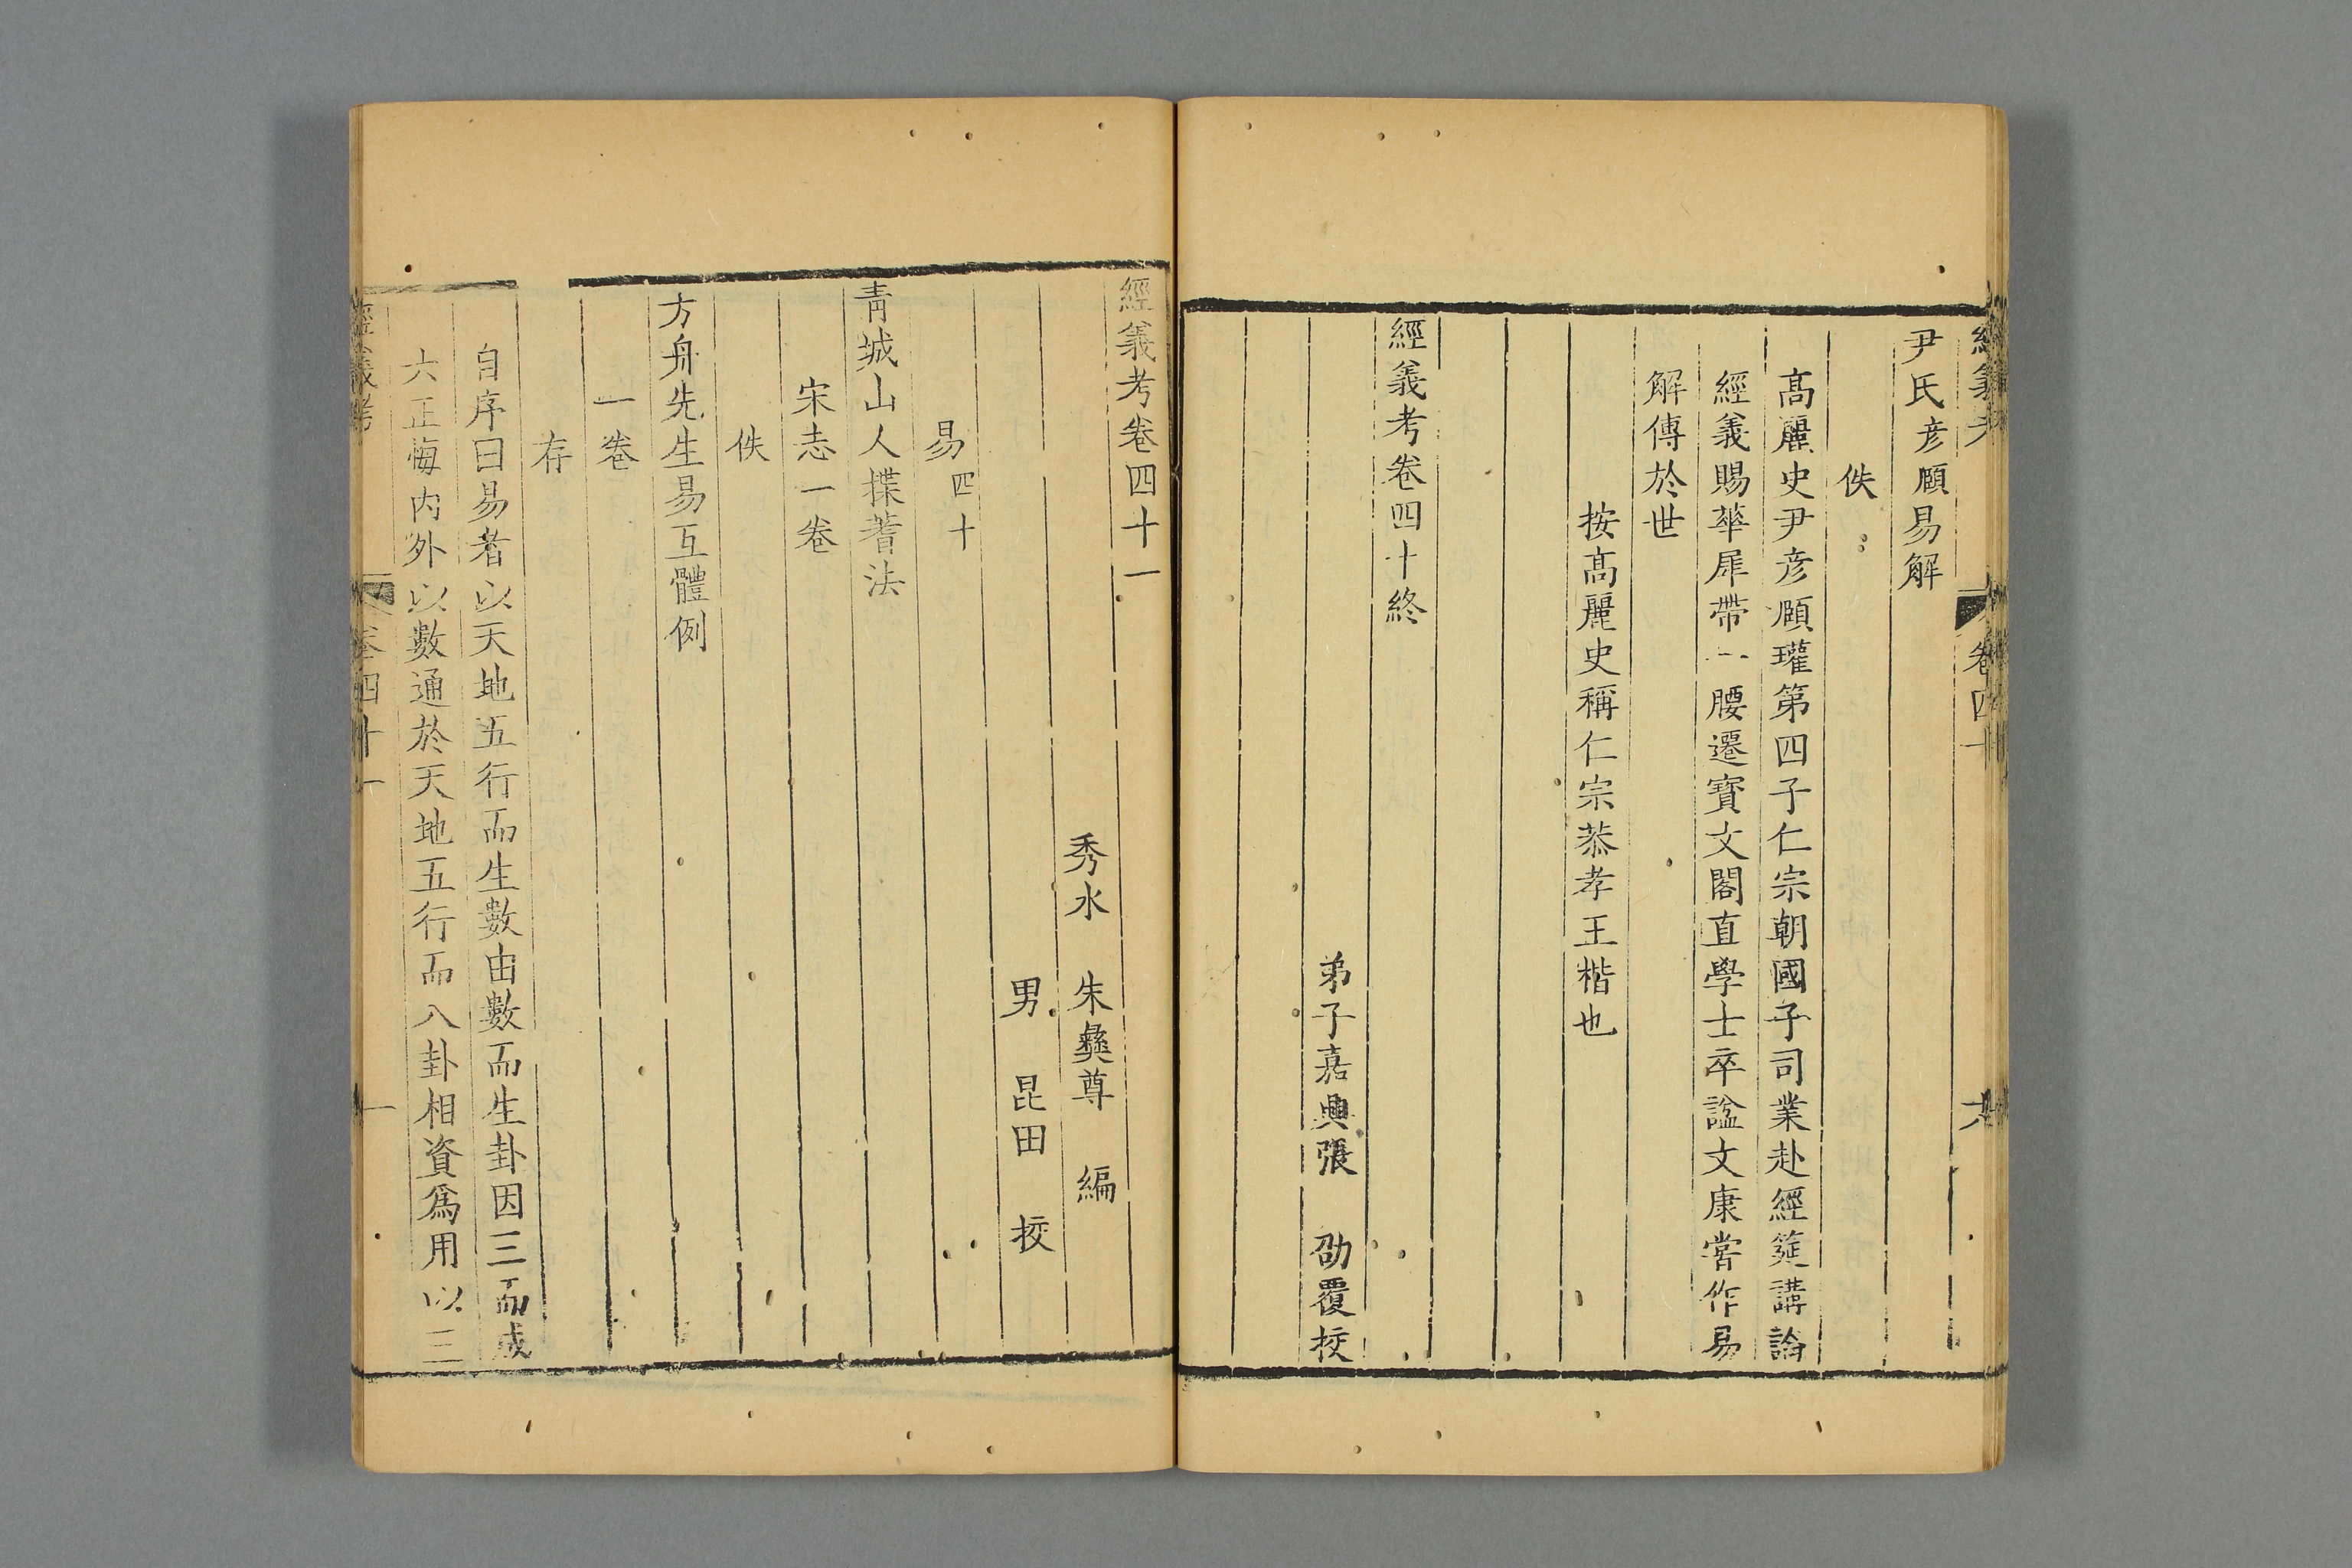 經義考
卷四十
六
尹氏彦頥易解
佚
高麗史尹彦頥瓘第四子仁宗朝國子司業赴經筵講論
經義賜華犀帶一腰遷寶文閣直學士卒諡文康甞作易
解傳於世
按高麗史稱仁宗恭孝王楷也
經義考卷四十終
弟子嘉興張 劭覆挍
經義考卷四十一
秀水 朱彝尊 編
男 昆田 挍
易四十
青城山人揲蓍法
宋志一卷
佚
方舟先生易互體例
一卷
存
自序曰易者以天地五行而生數由數而生卦因三而成
六正悔内外以數通於天地五行而八卦相資爲用以三
經義考
卷四十一
一